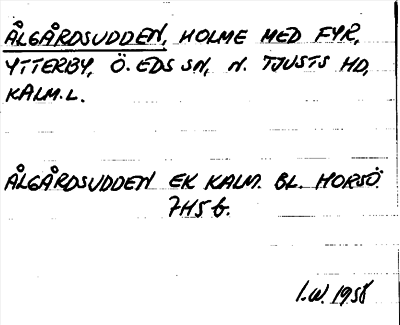 ÅLGÅRDSUDDEN, HOLME MED FYR,
YTTERBY, Ö. EDS SN, N. TJUSTS HD,
KALM. L.
ÅLGÅRDSUDDEN EK KALM. BL. HORSÖ.
7H5 b.
I.W. 1958